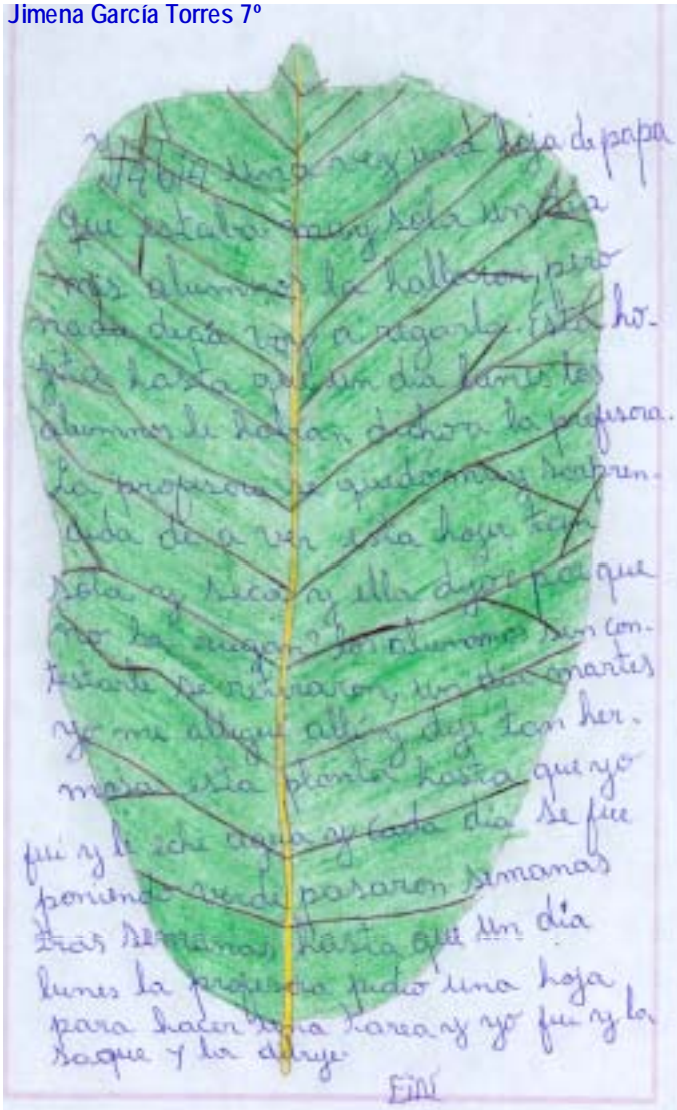 Jimena García Torres 7º
Había una vez una hoja de papa
que estaba muy sola un día
mis alumnos la hallaron, pero
nadie decía voy a regarla. Esta ho-
jita hasta que un dia lunes los
alumnos le habian dicho a la profesora.
La profesora se quedo muy sorpren-
dida de a ver esta hoja tan
sola y seca y ella dijo porque
no la riegan? los alumnos sin con-
testarle se retiraron, un dia martes
yo me allegue alli y dije tan her-
mosa esta planta hasta que yo
fui y le eche agua y cada dia se fue
poniendo verde pasaron semanas
tras semanas hasta que un día
lunes la profesora pidio una hoja
para hacer una tarea y yo fui y la
saque y la
FIN